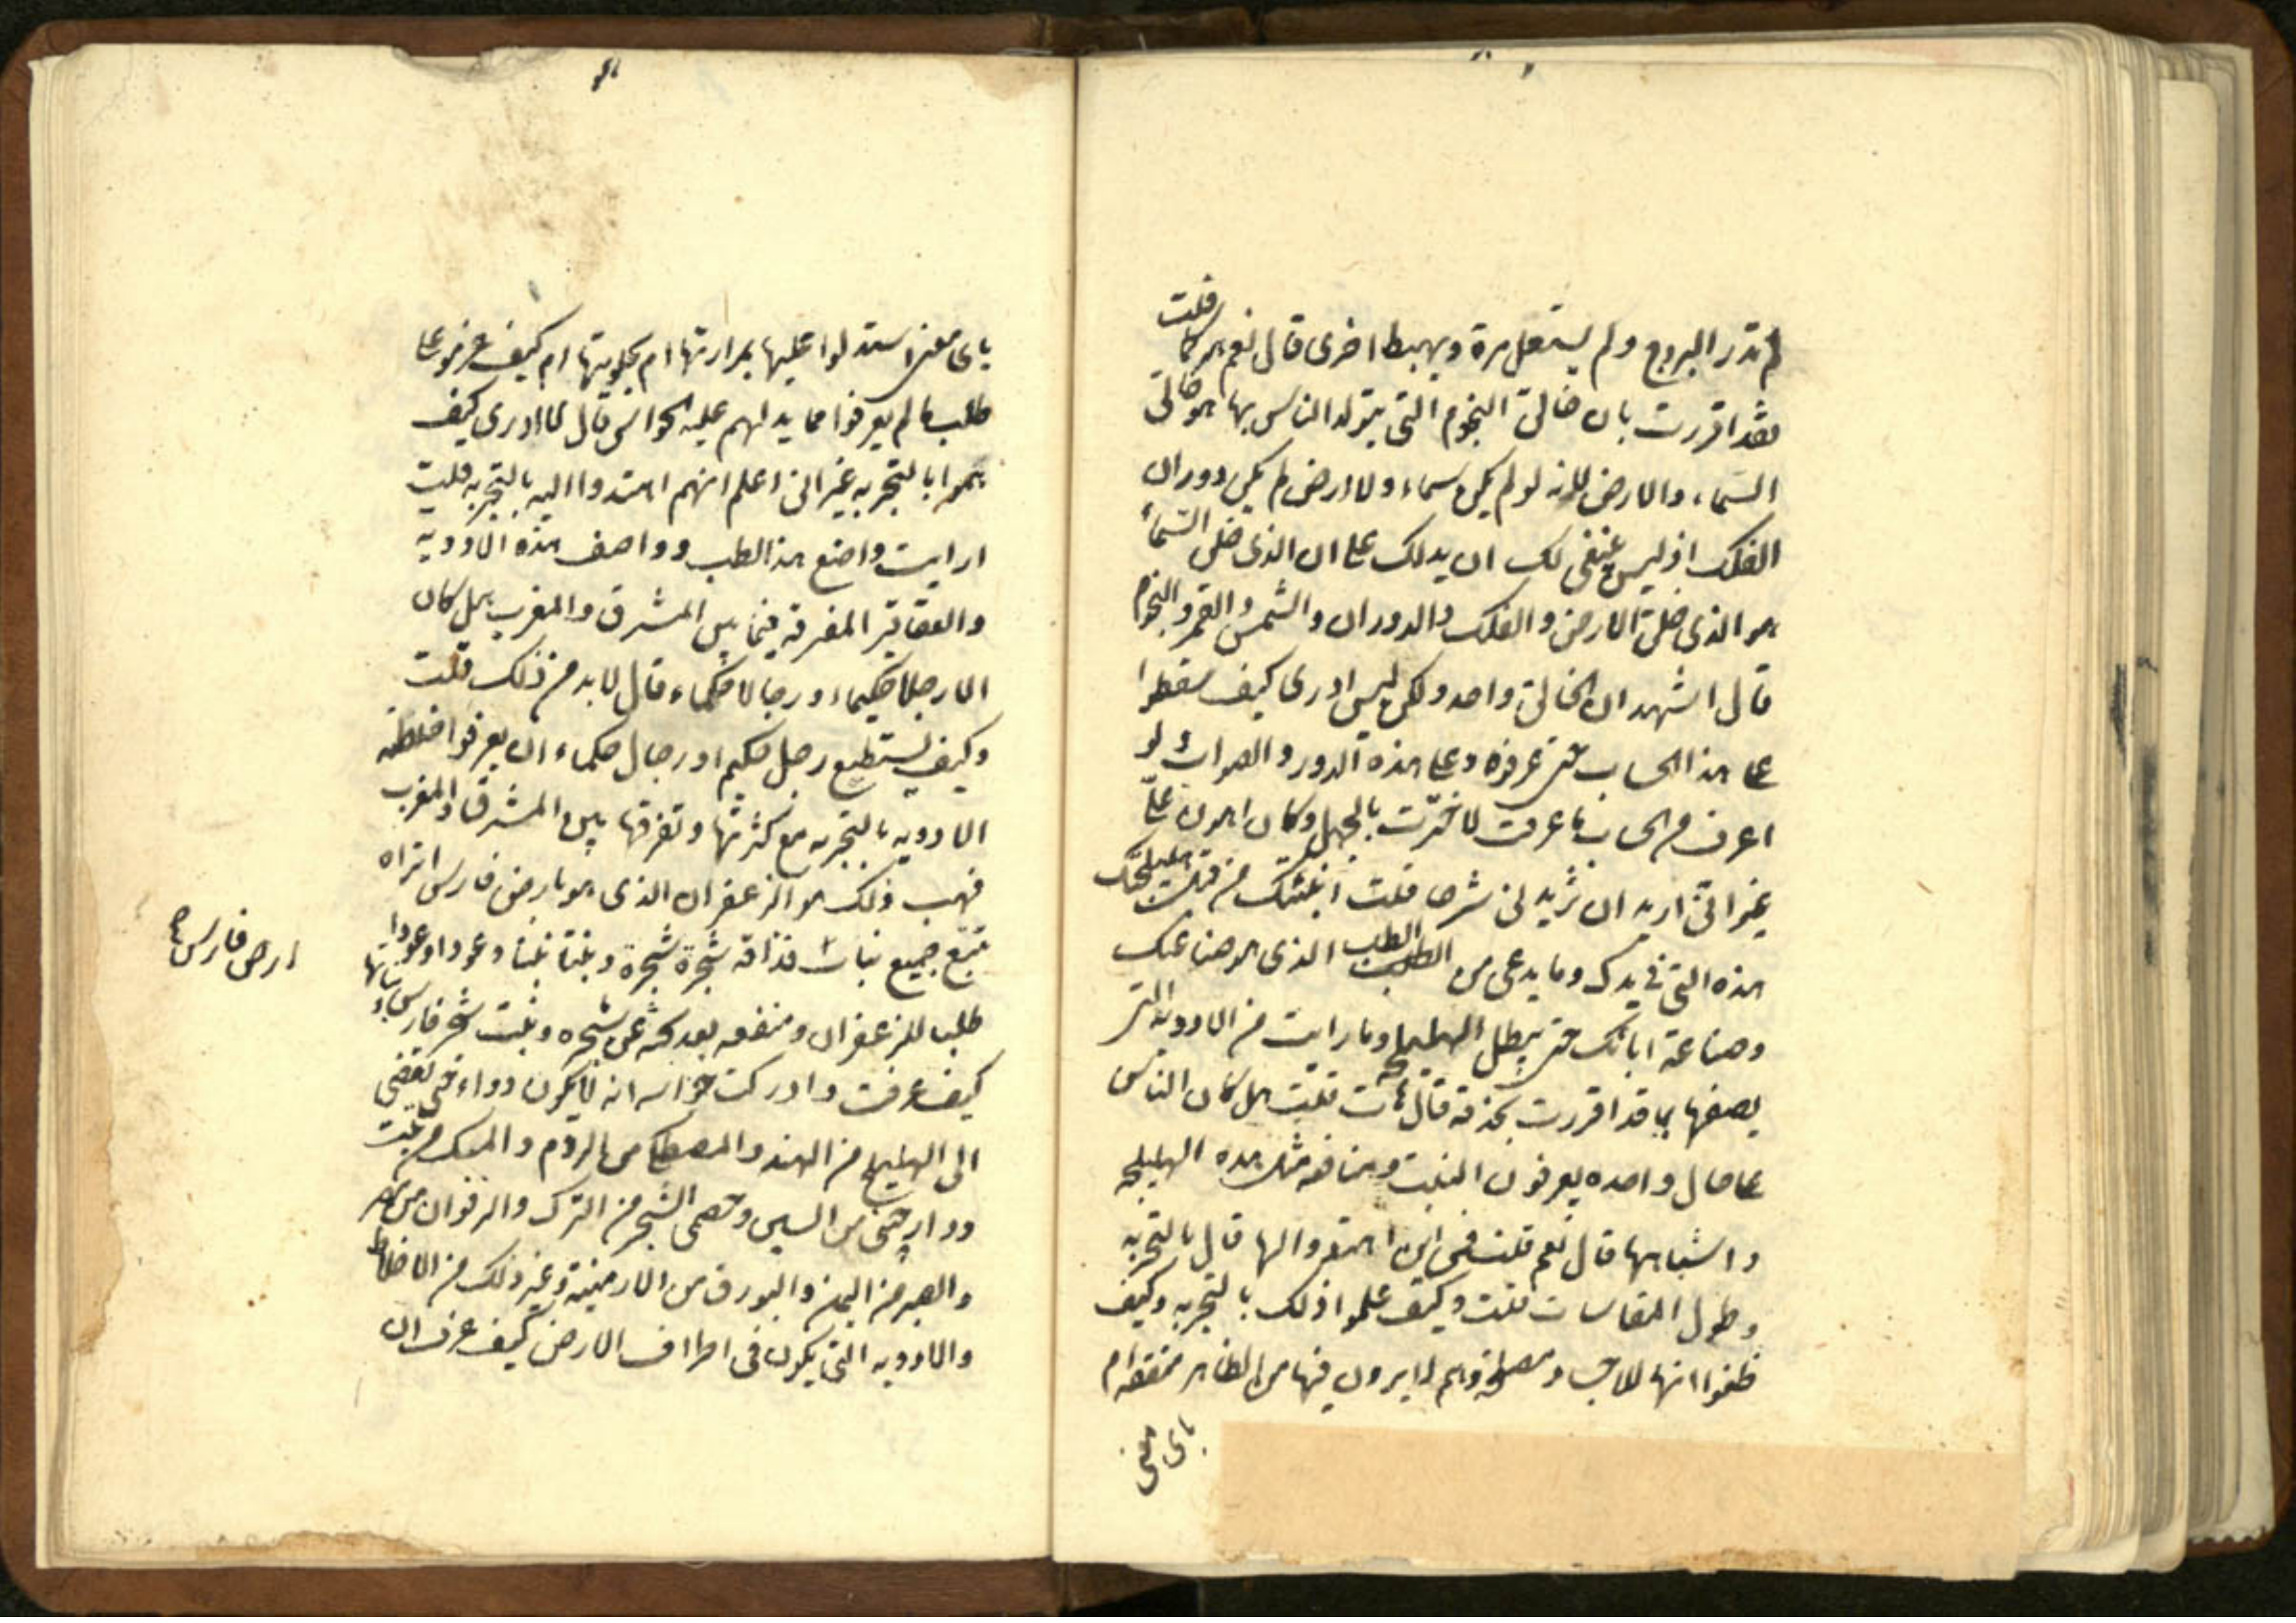 لم تدر البروج ولم يستعل مرة ويهبط اخرى قال نعم قلت
فقد اقررت بان خالق النجوم التي يتولد الناس بها هو خالق
السماء والارض لانه لو لم يكن سماء ولا ارض لم يكن دوران
الفلك اوليس ينبغي لك ان يدلك على ان الذى خلق السماء
هو الذى خلق الارض والفلك والدوران والشمس والقمر والنجوم
قال اشهد ان الخالق واحد ولكن ليس ادرى كيف سقطوا
على هذا الحساب حتى عرفوه وعلى هذه الدور والصواب ولو
اعرف من الحساب ما عرفت لاخبرت بالجهل وكان اهون على
غير انى اريد ان تزيدنى شرحا قلت انبئتك من قبل هليلجتك
هذه التي في يدك وما يدعى من الطب الذى هو صناعتك
وصناعة ابائك حتى يتصل الهليلجة وما رايت من الادوية التى
يصفها بما قد اقررت بحذقه قال هات قلت هل كان الناس
على حال واحده يعرفون المنبت ومنافعه مثل هذه الهليلجه
واشباهها قال نعم قلت فمن اين اهتدوا لها قال بالتجربه
وطول المقاسات قلت وكيف علموا ذلك بالتجربه وكيف
ظنوا انها للاجساد مصلحة وهم لا يرون فيها من الظاهر منفعه ام
باى معنى
باى معنى استدلوا عليها بمرارتها ام بحلاوتها ام كيف عزموا على
طلب ما لم يعرفوا مما يدلهم عليه الحواس قال لا ادرى كيف
هموا بالتجربه غير انى اعلم انهم اهتدوا اليه بالتجربه قلت
ارايت واضع هذا الطب وواصف هذه الادويه
والعقاقير المفرقه فيما بين المشرق والمغرب هل كان
الا رجلا حكيما ورجالا حكماء قال لا بد من ذلك قلت
وكيف يستطيع رجل حكيم او رجال حكماء ان يعرفوا اخلاطه
الادويه بالتجربه مع كثرتها وتفرقها بين المشرق والمغرب
فهب ذلك هو الزعفران الذى هو بارض فارس اتراه
تتبع جميع نبات فذاقه شجرة شجرة ونبتا نبتا وعودا وعودا
ارض فارس صح
طلبا للزعفران ومنفعه بعد بحثه عن شجره ونبت شجر فارس ونباتها
كيف عرفت وادركت حواسه انه لا يكون دواء حتى يفضى
الى الهليلج من الهند والمصطكى من الروم والمسك من تبت
ودارچينى من السين وخصى الشجر من الترك والزفوان من مصر
والصبر من اليمن والبورق من الارمينية وغير ذلك من الاخلاط
والادويه التي يكون فى اطراف الارض كيف عرف ان